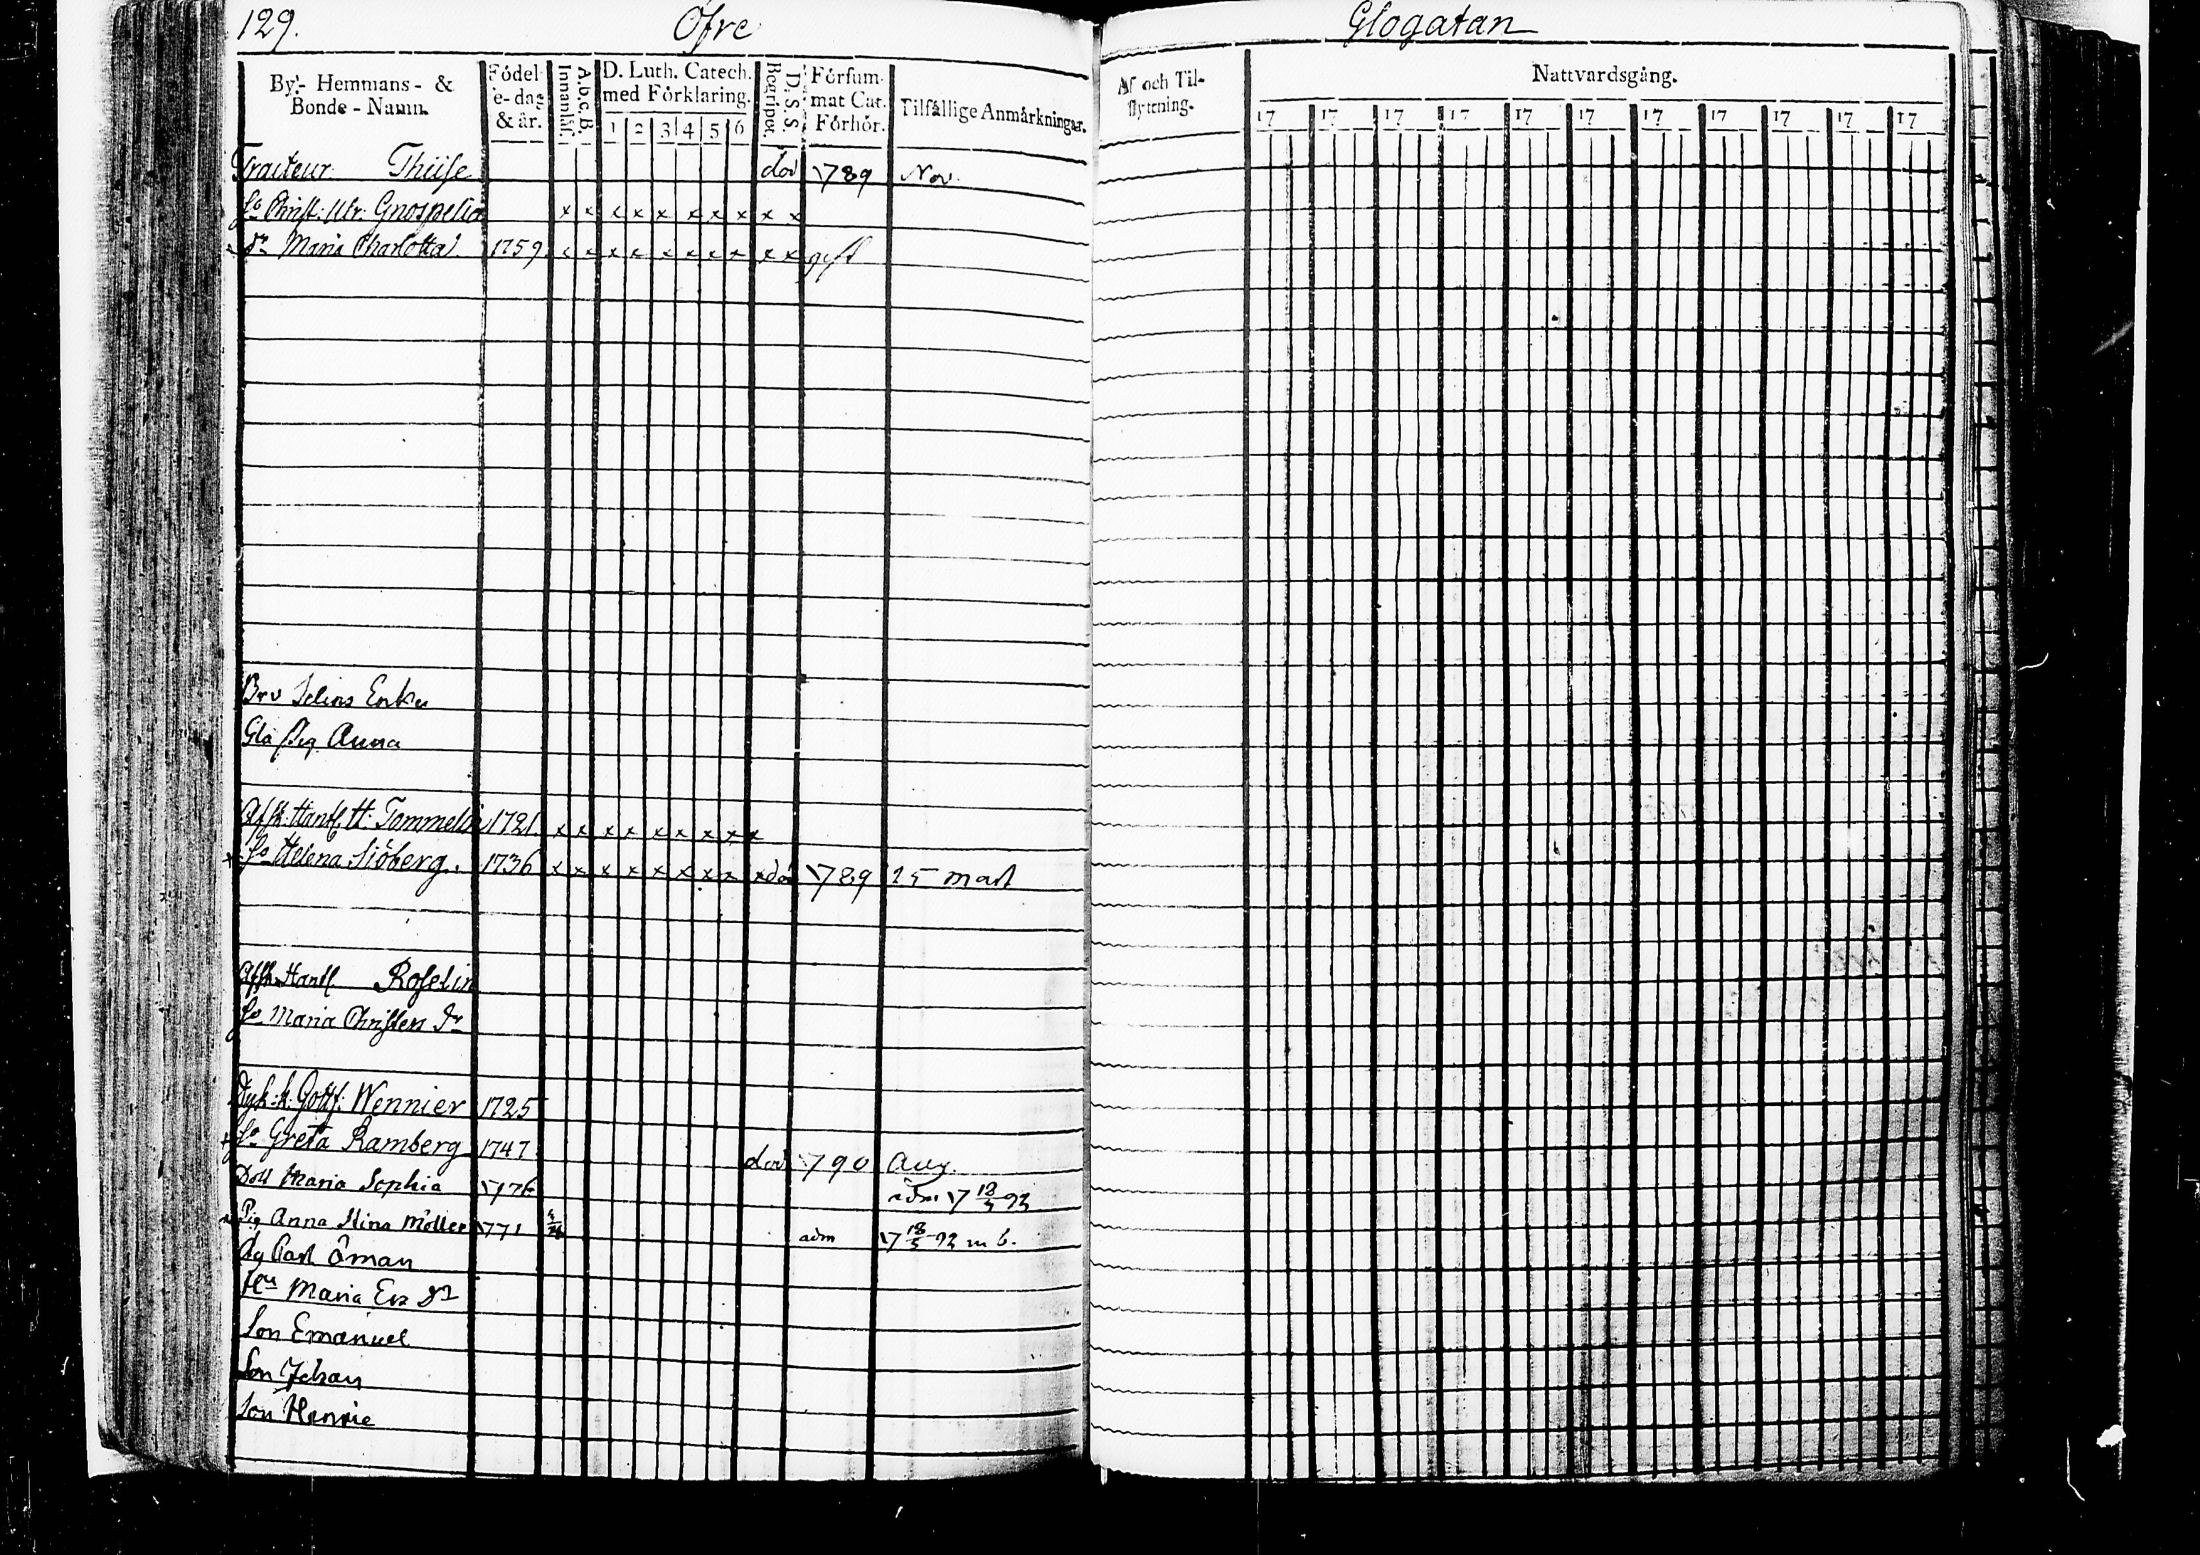 129. Öfre Glogatan
By- Hemmans- &
Bonde-Namn.
Födel-
se-dag
& år.
Innanläs.
A.b.c.B.
D. Luth. Catech.
med Förklaring.
1 2 3 4 5 6
Begripet
D. S. S.
Försum-
mat Cat.
Förhör.
Tilfällige Anmärkningar.
Af och Til-
flyttning.
Nattvardsgång.
17 17 17 17 17 17 17 17 17 17 17
Traiteur Thiise död 1789 Nov.
Christ: Ulr: Gnospelia x x x x x x x x x x
Dr Maria Charlotta 1759 x x x x x x x x x x gift
Enka
Anna
Handl. H: Tammelin 1721 x x x x x x x x x
x Helena Siöberg. 1736 x x x x x x x x x död 1789 15 mart
Handl Roselin
Maria Christens Dr
Gottf: Wennier 1725
Greta Ramberg 1747 död 1790 Aug.
Dott Maria Sophia 1776 adm 17 18/5 92
Pig Anna Stina Möller 1771 adm 17 18/5 92 m b.
Carl Öman
Hu Maria Ers Dr
Son Emanuel
Son Johan
Son Henric